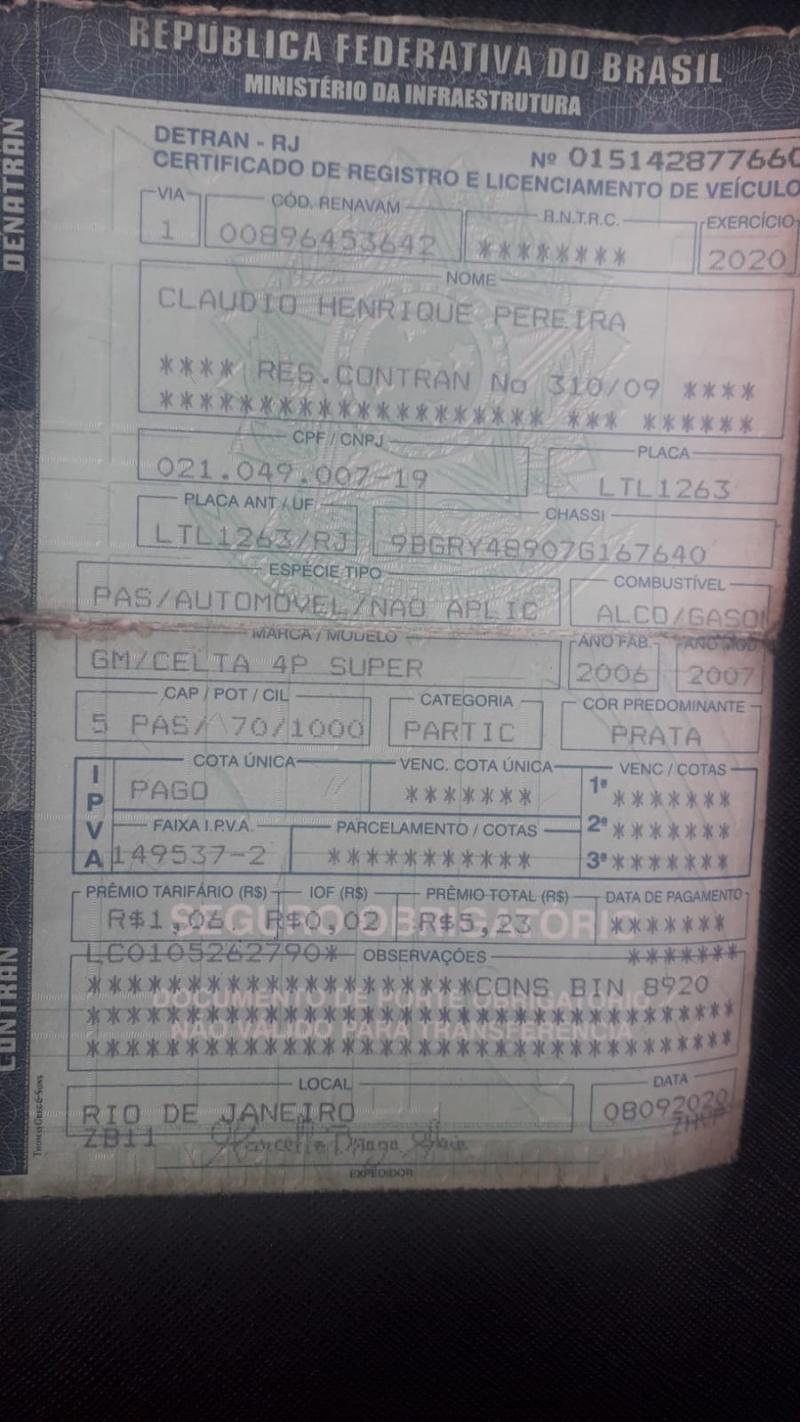 REPÚBLICA FEDERATIVA DO BRASIL
MINISTÉRIO DA INFRAESTRUTURA
DENATRAN
CONTRAN
DETRAN - RJ
Nº 015142877660
CERTIFICADO DE REGISTRO E LICENCIAMENTO DE VEÍCULO
VIA CÓD. RENAVAM R.N.T.R.C. EXERCÍCIO
1 00896453642 ******** 2020
NOME
CLAUDIO HENRIQUE PEREIRA
**** RES.CONTRAN No 310/09 ****
*********************** *** ******
CPF / CNPJ PLACA
021.049.007-19 LTL1263
PLACA ANT / UF CHASSI
LTL1263/RJ 9BGRY48907G167640
ESPÉCIE TIPO COMBUSTÍVEL
PAS/AUTOMOVEL/NAO APLIC ALCO/GASOL
MARCA / MODELO ANO FAB. ANO MOD
GM/CELTA 4P SUPER 2006 2007
CAP / POT / CIL CATEGORIA COR PREDOMINANTE
5 PAS/ 70/1000 PARTIC PRATA
IPVA
COTA ÚNICA VENC. COTA ÚNICA VENC / COTAS
PAGO ******* 1ª *******
FAIXA I.P.V.A. PARCELAMENTO / COTAS 2ª *******
149537-2 *********** 3ª *******
PRÊMIO TARIFÁRIO (R$) IOF (R$) PRÊMIO TOTAL (R$) DATA DE PAGAMENTO
R$1,06 R$0,02 R$5,23 *******
SEGURO OBRIGATÓRIO
LC0105262790* OBSERVAÇÕES *******
***********************CONS BIN 8920
DOCUMENTO DE PORTE OBRIGATÓRIO
NÃO VÁLIDO PARA TRANSFERÊNCIA
LOCAL DATA
RIO DE JANEIRO 08092020
ZB11
EXPEDIDOR
THOMAS GREG & SONS